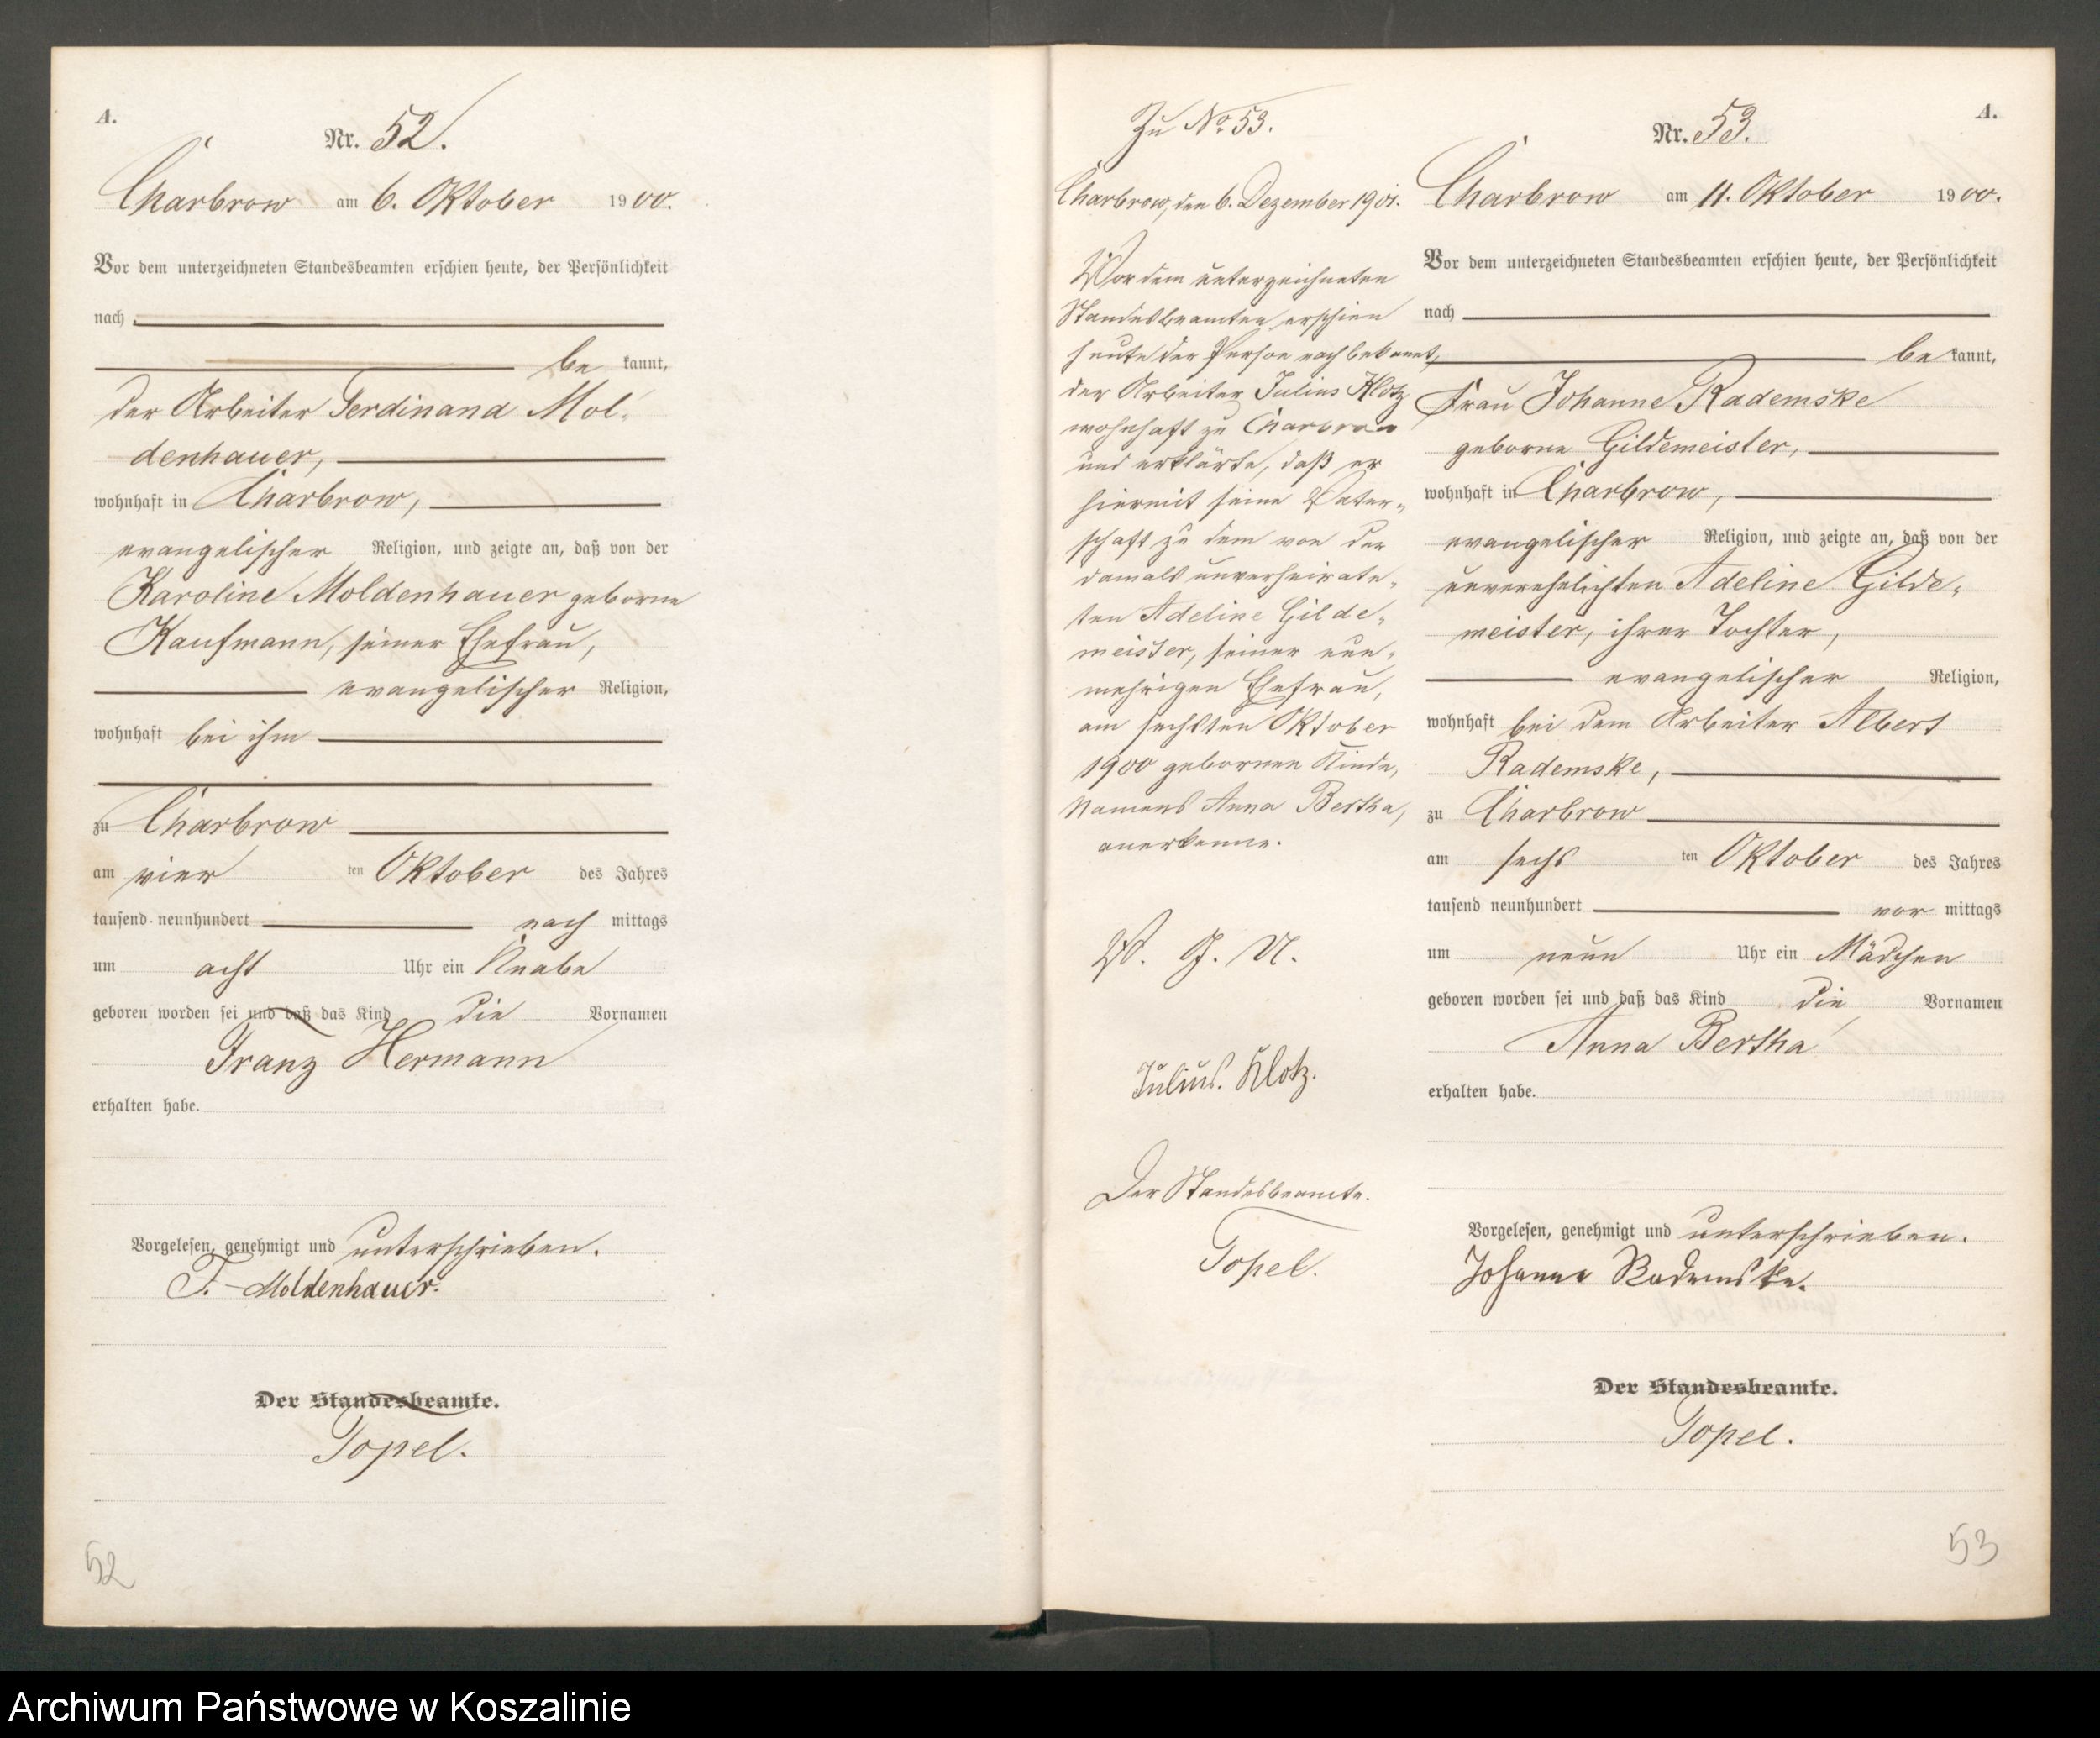 A.
Nr. 52.
Charbrow am 6. Oktober 1900.
Vor dem unterzeichneten Standesbeamten erschien heute, der Persönlichkeit
nach
be kannt,
der Arbeiter Ferdinand Mol-
denhauer,
wohnhaft in Charbrow,
evangelischer Religion, und zeigte an, daß von der
Karoline Moldenhauer geborne
Kaufmann, seiner Ehefrau,
evangelischer Religion,
wohnhaft bei ihm
zu Charbrow
am vier ten Oktober des Jahres
tausend neunhundert nach mittags
um acht Uhr ein Knabe
geboren worden sei und daß das Kind die Vornamen
Franz Hermann
erhalten habe.
Vorgelesen, genehmigt und unterschrieben.
F. Moldenhauer.
Der Standesbeamte.
Topel.
52
Zu No 53.
Charbrow, den 6. Dezember 1901.
Vor dem unterzeichneten
Standesbeamten erschien
heute der Person nach bekannt,
der Arbeiter Julius Klotz
wohnhaft zu Charbrow
und erklärte, daß er
hiermit seine Vater-
schaft zu dem von der
damals unverheirate-
ten Adeline Gilde-
meister, seiner nun-
mehrigen Ehefrau,
am sechsten Oktober
1900 gebornen Kinde,
Namens Anna Bertha,
anerkenne.
V. G. U.
Julius. Klotz.
Der Standesbeamte.
Topel.
A.
Nr. 53.
Charbrow am 11. Oktober 1900.
Vor dem unterzeichneten Standesbeamten erschien heute, der Persönlichkeit
nach
be kannt,
Frau Johanne Rademske
geborne Gildemeister,
wohnhaft in Charbrow,
evangelischer Religion, und zeigte an, daß von der
unverehelichten Adeline Gilde-
meister, ihrer Tochter,
evangelischer Religion,
wohnhaft bei dem Arbeiter Albert
Rademske,
zu Charbrow
am sechs ten Oktober des Jahres
tausend neunhundert vor mittags
um neun Uhr ein Mädchen
geboren worden sei und daß das Kind die Vornamen
Anna Bertha
erhalten habe.
Vorgelesen, genehmigt und unterschrieben.
Johanne Rademske.
Der Standesbeamte.
Topel.
53
Archiwum Państwowe w Koszalinie